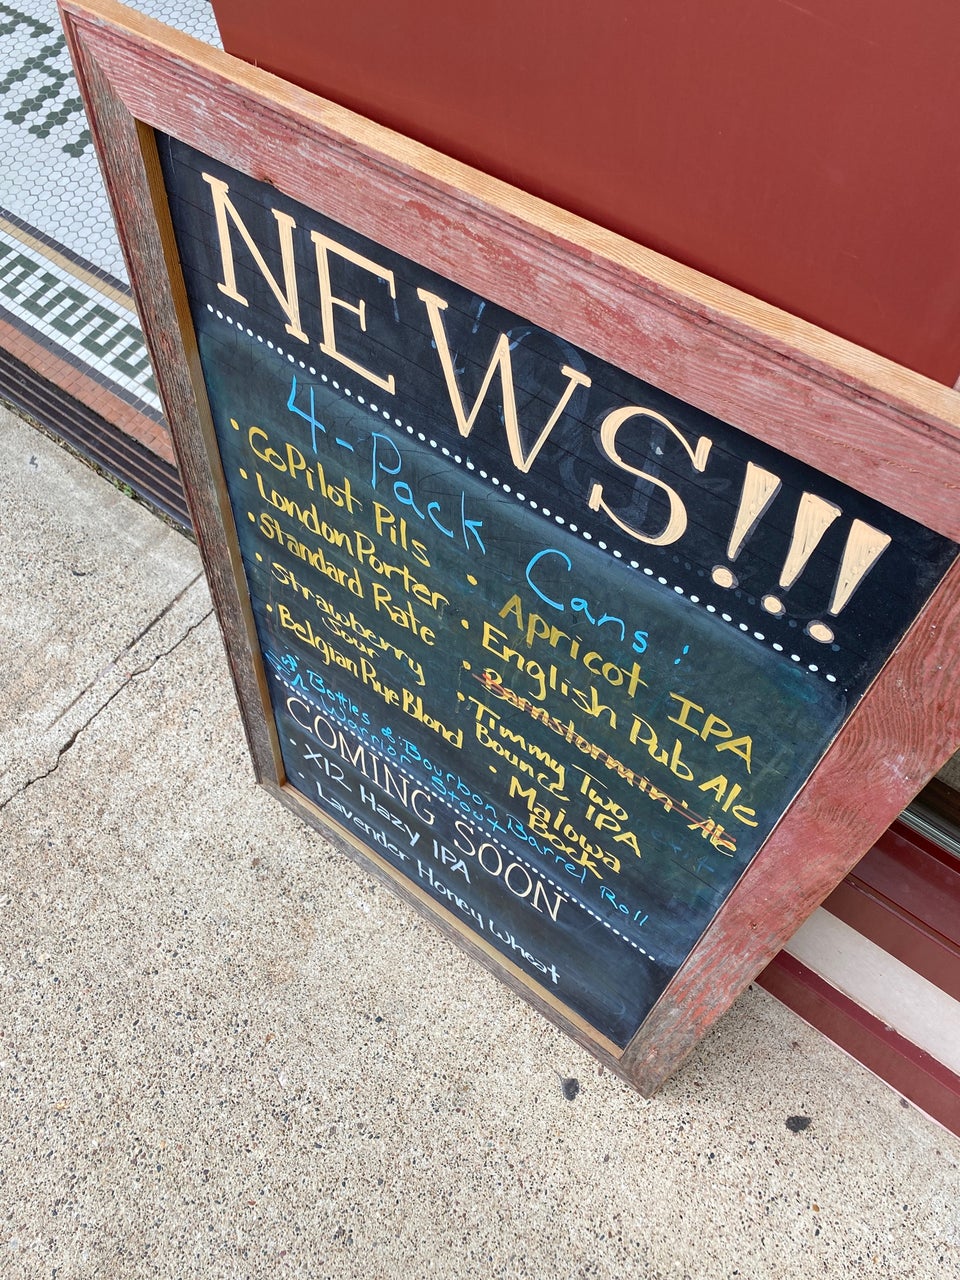 NEWS!!!
4-Pack Cans:
• CoPilot Pils
• London Porter
• Standard Rate
• Strawberry
Sour
• Belgian Rye Blond
• Apricot IPA
• English Pub Ale
• Barnstormin' Ale
• Timmy Two
Bounce IPA
• Malowa
Bock
Bottles of Bourbon Barrel Roll
Warrior Stout
COMING SOON
• X12 Hazy IPA
• Lavender Honey Wheat